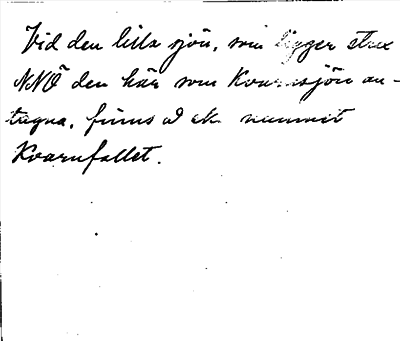 Vid den lilla sjön, som ligger strax
NNÖ den här som Kvarnsjön an-
tagna, finns å ek. namnet
Kvarnfallet.